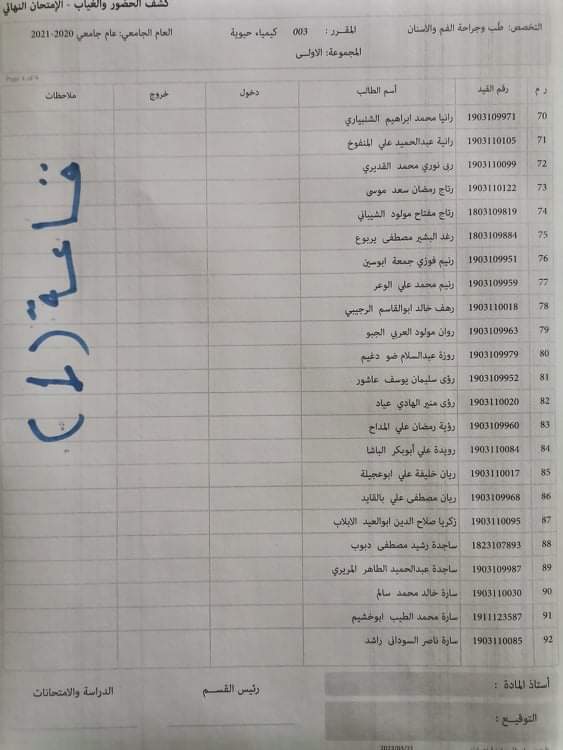 كشف الحضور والغياب - الإمتحان النهائي
التخصص: طب وجراحة الفم والأسنان المقـرر : 003 كيمياء حيوية العام الجامعي: عام جامعي 2020-2021
المجموعة: الاولـى
Page 4 of 9
ر م رقم القيد أسم الطالب دخول خروج ملاحظات
70 1903109971 رانيا محمد ابراهيم الشنبياري
71 1903110105 رانية عبدالحميد علي المنفوخ
72 1903110099 ربى نوري محمد القديري
73 1903110122 رتاج رمضان سعد موسى
74 1803109819 رتاج مفتاح مولود الشيباني
75 1803109884 رغد البشير مصطفى يربوع
76 1903109951 رنيم فوزي جمعة ابوسين
77 1903109959 رنيم محمد علي الوعر
78 1903110018 رهف خالد ابوالقاسم الرجيبي
79 1903109963 روان مولود العربي الجبو
80 1903109979 روزة عبدالسلام ضو دغيم
81 1903109952 رؤى سليمان يوسف عاشور
82 1903110020 رؤى منير الهادي عياد
83 1903109960 رؤية رمضان علي المداح
84 1903110084 رويدة علي أبوبكر الباشا
85 1903110017 ريان خليفة علي ابوعجيلة
86 1903109968 ريان مصطفى علي بالقايد
87 1903110095 زكريا صلاح الدين ابوالعيد الابلاب
88 1823107893 ساجدة رشيد مصطفى دبوب
89 1903109987 ساجدة عبدالحميد الطاهر المريري
90 1903110030 سارة خالد محمد سالم
91 1911123587 سارة محمد الطيب ابوخشيم
92 1903110085 سارة ناصر السودانى راشد
قاعة (1)
أستاذ المادة : رئيس القســم الدراسة والامتحانات
التوقيـع :